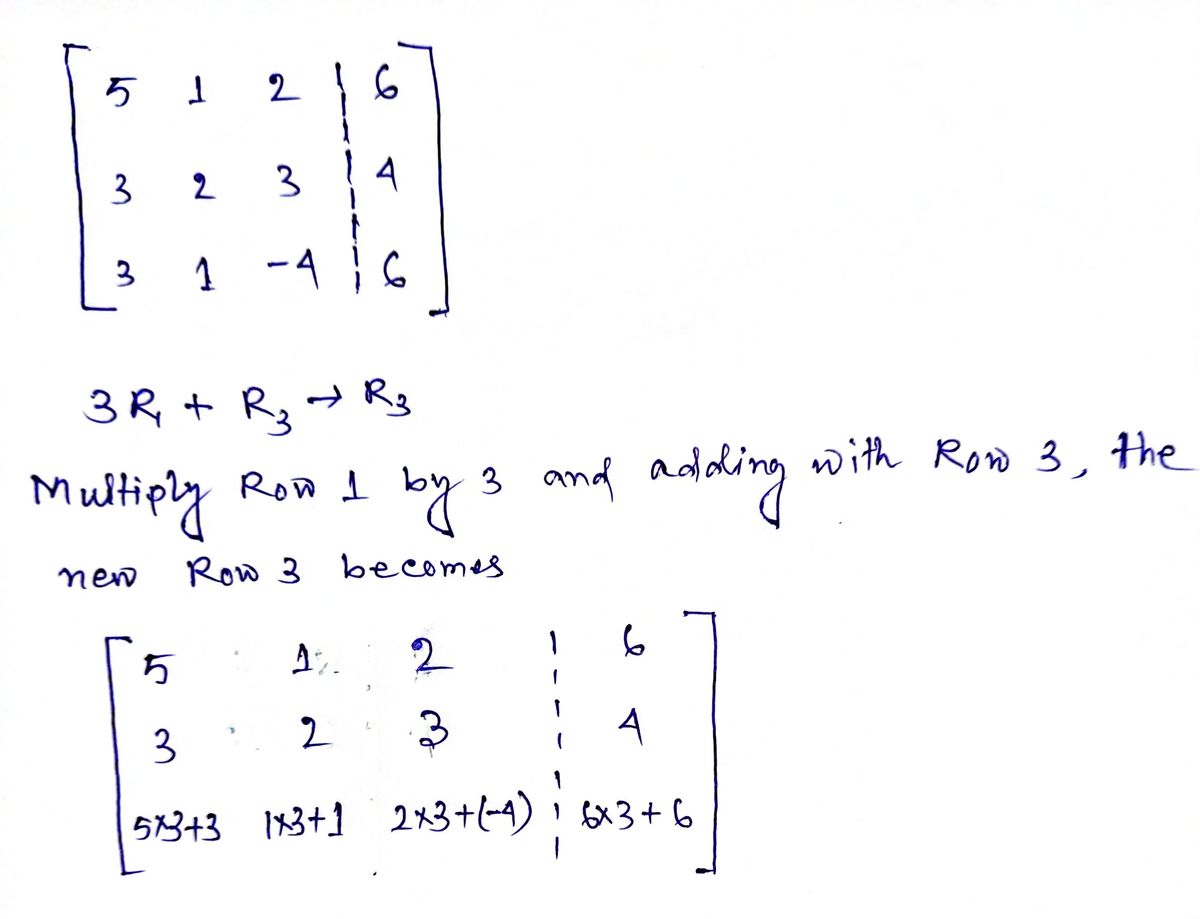 5 1 2 | 6
3 2 3 | 4
3 1 -4 | 6
3R₁ + R₃ → R₃
Multiply Row 1 by 3 and adding with Row 3, the
new Row 3 becomes
5 1 2 | 6
3 2 3 | 4
5×3+3 1×3+1 2×3+(-4) | 6×3+6